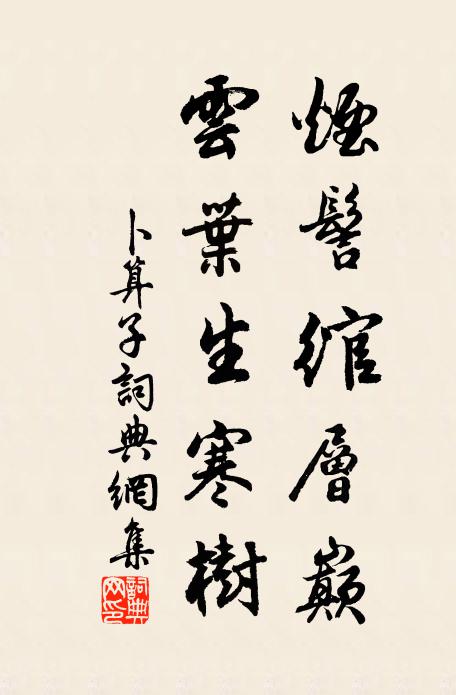 煙髻綰層巔
雲葉生寒樹
卜算子詞典網集
詞典网印